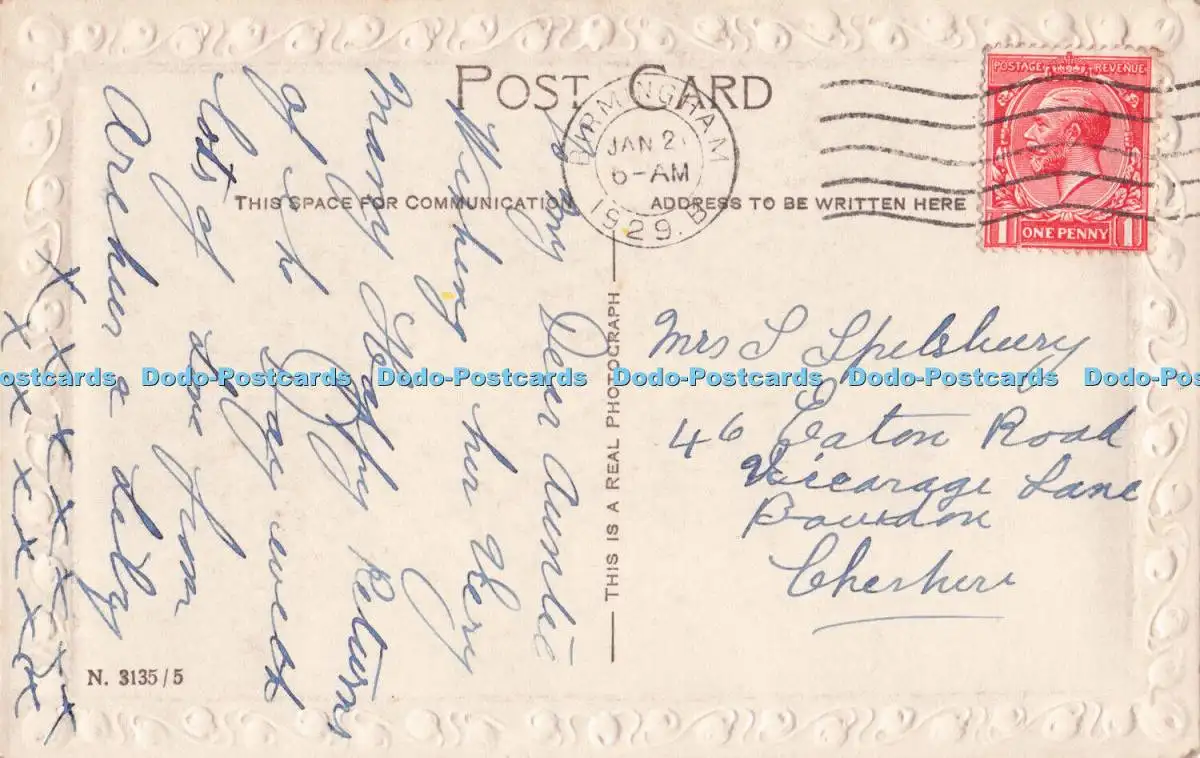 POST CARD
THIS SPACE FOR COMMUNICATION
ADDRESS TO BE WRITTEN HERE
BIRMINGHAM
JAN 2
6-AM
1929. B
POSTAGE REVENUE
1 ONE PENNY 1
To My Dear Auntie
Wishing her Very
Many Happy Returns
of the Day week
Lots of love from
Arthur & Lily
X X X X X X X X
X X X X X X X X
THIS IS A REAL PHOTOGRAPH
Mrs S Spelsbury
46 Eaton Road
Viccarage Lane
Bowdon
Cheshire
N. 3135/5
Dodo-Postcards Dodo-Postcards Dodo-Postcards Dodo-Postcards Dodo-Postcards Dodo-Postcards